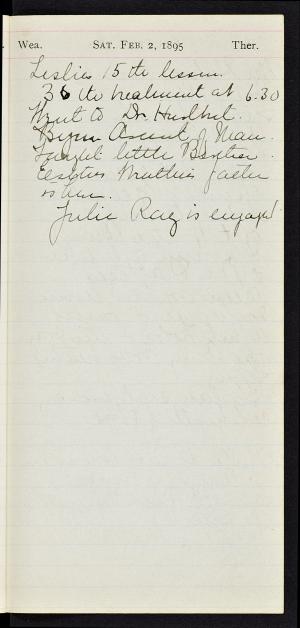 Wea. SAT. FEB. 2, 1895 Ther.
Leslie's 15 th lesson.
36 th treatment at 6.30
Went to Dr. Hurlbut.
Began Ascent of Man.
Taught little
father
is here.
Julie Ray is engaged